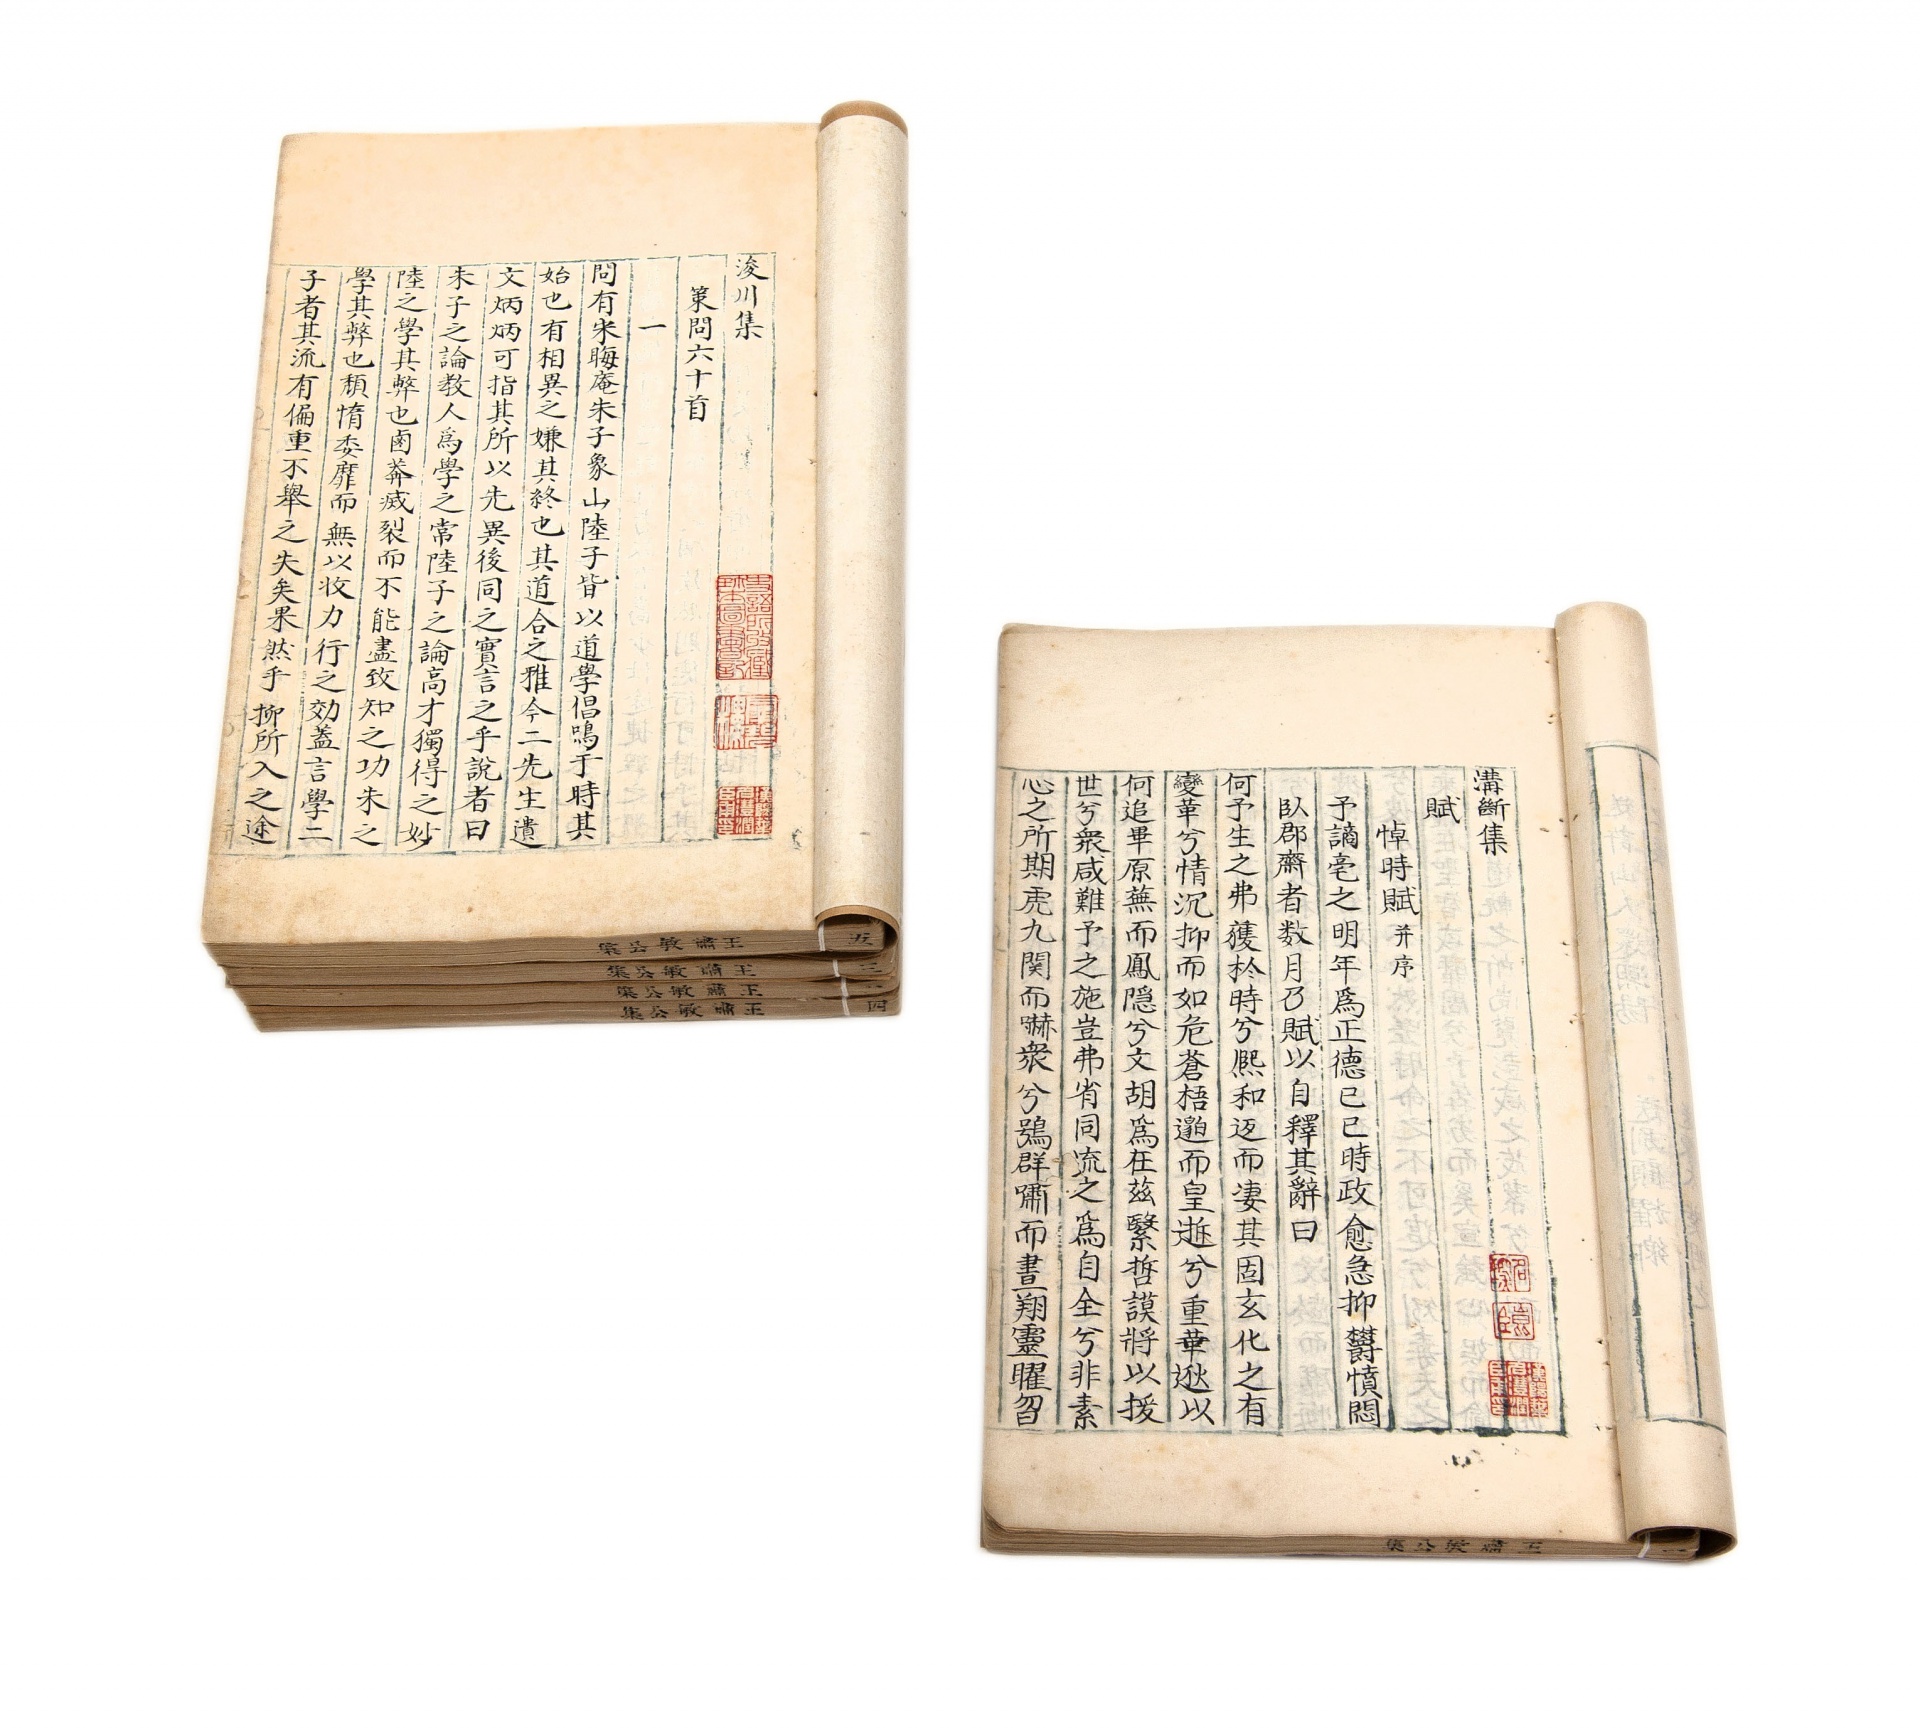 浚川集
策問六十首
一
問有宋晦庵朱子象山陸子皆以道學倡鳴于時其
始也有相異之嫌其終也其道合之雅今二先生遺
文炳炳可指其所以先異後同之實言之乎說者曰
朱子之論教人爲學之常陸子之論高才獨得之妙
陸之學其弊也鹵莽滅裂而不能盡致知之功朱之
學其弊也頹惰委靡而無以收力行之効蓋言學二
子者其流有偏重不舉之失矣果然乎抑所入之途
王肅敏公集
五
王肅敏公集
三
王肅敏公集
王肅敏公集
四
溝斷集
賦
悼時賦并序
予謫亳之明年爲正德己巳時政愈急抑欝憤悶
臥郡齋者数月乃賦以自釋其辭曰
何予生之弗獲於時兮熈和返而凄其固玄化之有
變華兮情沉抑而如危蒼梧邈而皇逝兮重華逖以
何追畢原蕪而鳳隱兮文胡爲在茲緊哲謨將以援
世兮衆咸難予之施豈弗省同流之爲自全兮非素
心之所期虎九関而嚇衆兮鴞群嘯而晝翔靈曜曶
王肅敏公集
一